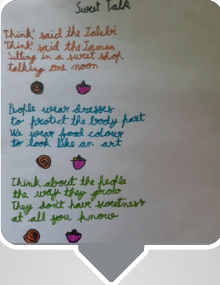 Sweet Talk
'Think' said the Jalebi
'Think' said the Jamun
Sitting in a sweet shop
talking one noon
People wear dresses
to protect the body part
We wear food colour
to look like an art
Think about the people
the way they grow
They don't have sweetness
at all you know